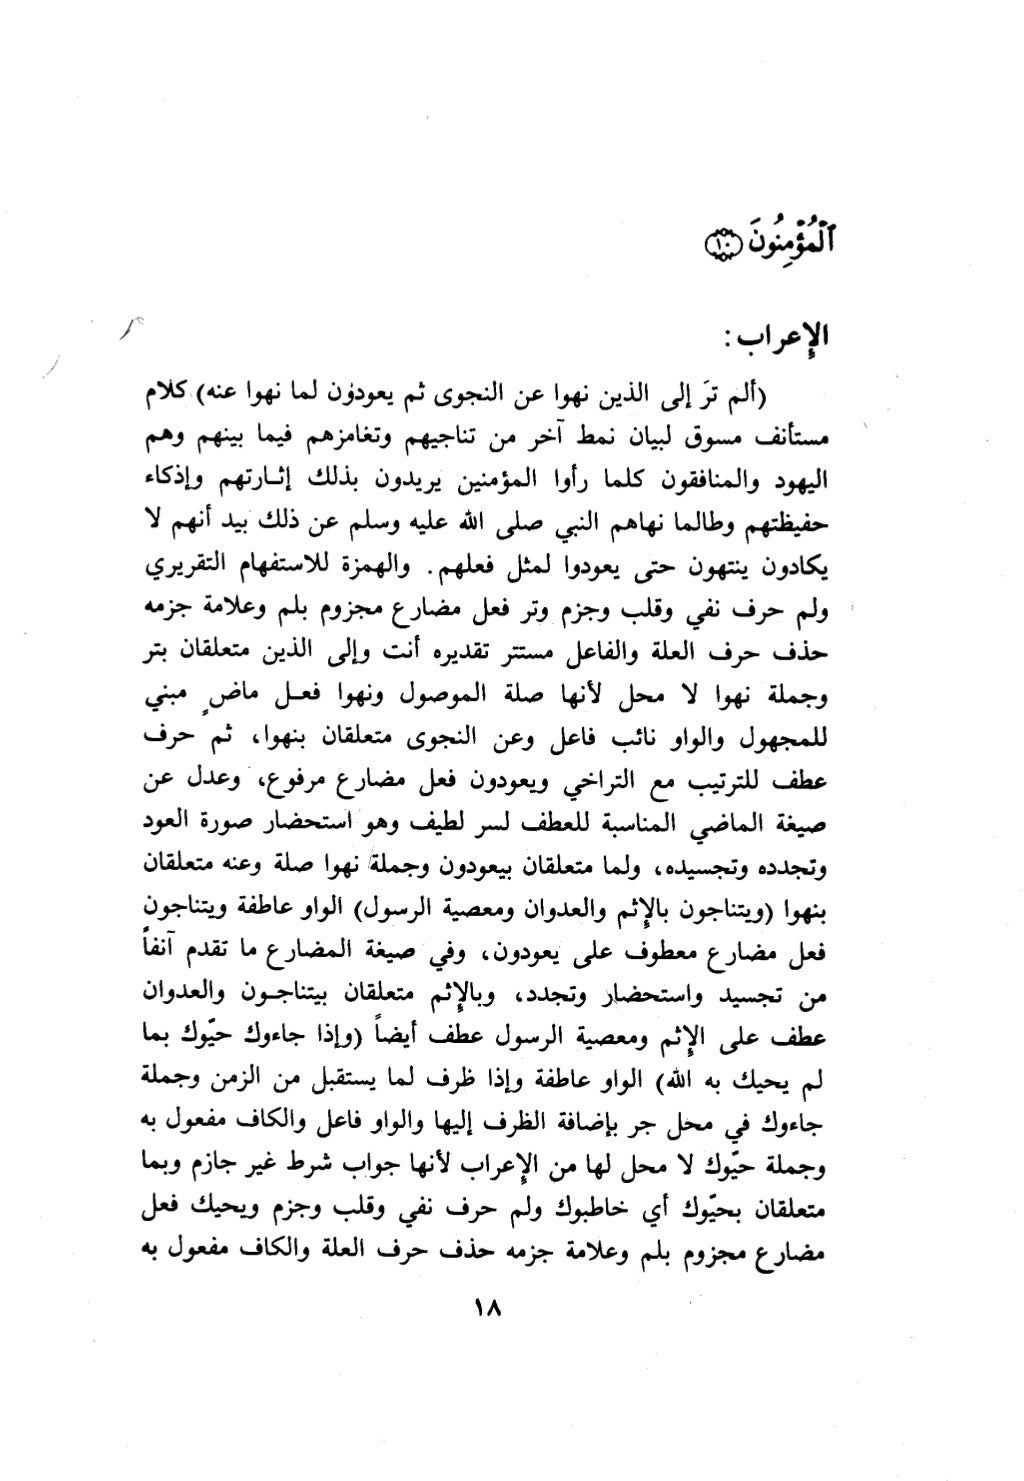 ٱلْمُؤْمِنُونَ ۝١٠
الإعراب :
(ألم ترَ إلى الذين نهوا عن النجوى ثم يعودون لما نهوا عنه) كلام
مستأنف مسوق لبيان نمط آخر من تناجيهم وتغامزهم فيما بينهم وهم
اليهود والمنافقون كلما رأوا المؤمنين يريدون بذلك إثارتهم وإذكاء
حفيظتهم وطالما نهاهم النبي صلى الله عليه وسلم عن ذلك بيد أنهم لا
يكادون ينتهون حتى يعودوا لمثل فعلهم. والهمزة للاستفهام التقريري
ولم حرف نفي وقلب وجزم وتر فعل مضارع مجزوم بلم وعلامة جزمه
حذف حرف العلة والفاعل مستتر تقديره أنت وإلى الذين متعلقان بتر
وجملة نهوا لا محل لأنها صلة الموصول ونهوا فعل ماضٍ مبني
للمجهول والواو نائب فاعل وعن النجوى متعلقان بنهوا، ثم حرف
عطف للترتيب مع التراخي ويعودون فعل مضارع مرفوع، وعدل عن
صيغة الماضي المناسبة للعطف لسر لطيف وهو استحضار صورة العود
وتجدده وتجسيده، ولما متعلقان بيعودون وجملة نهوا صلة وعنه متعلقان
بنهوا (ويتناجون بالإثم والعدوان ومعصية الرسول) الواو عاطفة ويتناجون
فعل مضارع معطوف على يعودون، وفي صيغة المضارع ما تقدم آنفاً
من تجسيد واستحضار وتجدد، وبالإثم متعلقان بيتناجون والعدوان
عطف على الإثم ومعصية الرسول عطف أيضاً (وإذا جاءوك حيّوك بما
لم يحيك به الله) الواو عاطفة وإذا ظرف لما يستقبل من الزمن وجملة
جاءوك في محل جر بإضافة الظرف إليها والواو فاعل والكاف مفعول به
وجملة حيّوك لا محل لها من الإعراب لأنها جواب شرط غير جازم وبما
متعلقان بحيّوك أي خاطبوك ولم حرف نفي وقلب وجزم ويحيك فعل
مضارع مجزوم بلم وعلامة جزمه حذف حرف العلة والكاف مفعول به
١٨